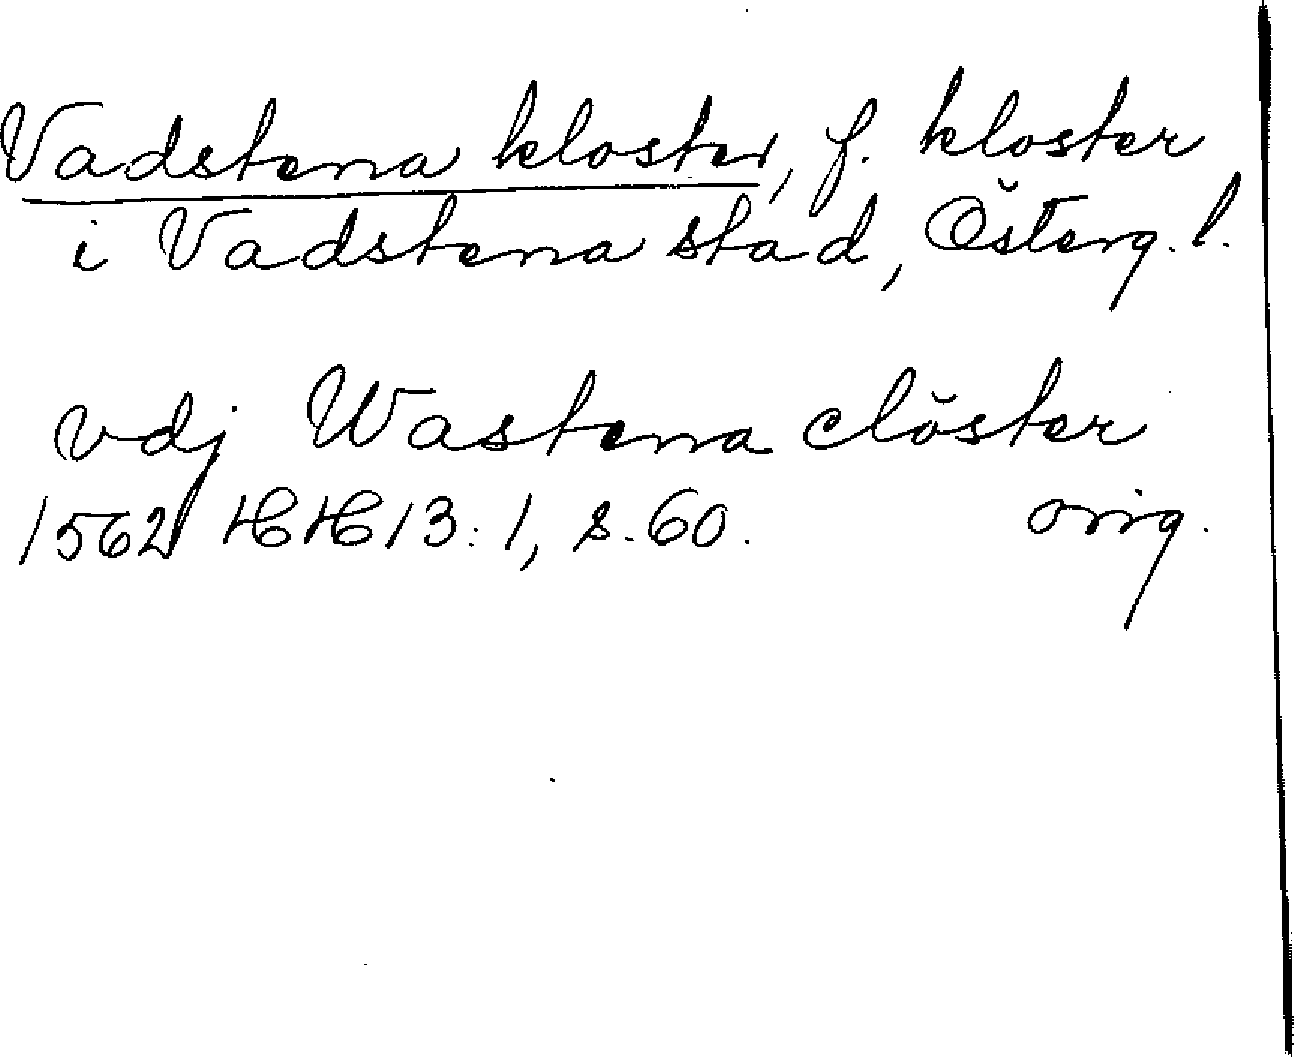 Vadstena kloster, f. kloster
i Vadstena stad, Österg. l.
vdj Wastena clöster
1562 HH 13:1, s. 60. orig.